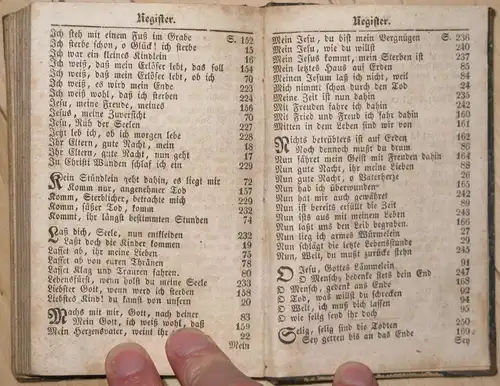 Register.
Ich steh mit einem Fuß im Grabe S. 152
Ich sterbe schon, o Glück! ich sterbe 15
Ich war ein kleines Kindlein 16
Ich weiß, daß mein Erlöser lebt, das soll 154
Ich weiß, daß mein Erlöser lebt, ob ich 70
Ich weiß, es wird mein Ende 223
Ich weiß wohl, daß ich sterben 224
Jesu, meine Freude, meines 156
Jesus, meine Zuversicht 70
Jesu, Ruh der Seelen 227
Jetzt leb ich, ob ich morgen lebe 228
Ihr Eltern, gute Nacht, mein 18
Ihr Eltern, gute Nacht, nun geht 17
In Christi Wunden schlaf ich ein 229
Kein Stündlein geht dahin, es liegt mir 72
Komm nur, angenehmer Tod 157
Komm, Sterblicher, betrachte mich 229
Komm, süßer Tod, komm 232
Kommt, ihr längst bestimmten Stunden 74
Laß dich, Seele, nun entkleiden 232
Laßt doch die Kinder kommen 19
Lasset ab, ihr meine Lieben 75
Lasset ab von euren Thränen 78
Lasset Klag und Trauren fahren. 80
Lebensfürst, wenn holst du meine Seele 233
Liebster Gott, wenn werd ich sterben 158
Liebstes Kind! du kannst von unsern 20
Machs mit mir, Gott, nach deiner 83
Mein Gott, ich weiß wohl, daß 159
Mein Herzensvater, weint ihr 22
Mein
Register.
Mein Jesu, du bist mein Vergnügen S. 236
Mein Jesu, wie du willst 240
Mein Jesus kommt, mein Sterben ist 237
Mein letztes Haus auf Erden 85
Meinen Jesum laß ich nicht, weil 84
Mich nimmt schon durch den Tod 24
Meine Zeit ist nun dahin 241
Mit Freuden fahre ich dahin 242
Mit Fried und Freud ich fahr dahin 160
Mitten in dem Leben sind wir von 161
Nichts betrübters ist auf Erden 162
Noch dennoch mußt du drum 86
Nun fähret mein Geist mit Freuden dahin 164
Nun gute Nacht, ihr meine Lieben 88
Nun gute Nacht, o Vaterherze 26
Nun hab ich überwunden 165
Nun hat mir auch gewähret 242
Nun ist bereits erfüllt die Zeit 89
Nun ists aus mit meinem Leben 243
Nun laßt uns den Leib begraben 166
Nun lieg ich armes Würmelein 27
Nun schlägt die letzte Lebensstunde 29
Nun, Welt, du mußt zurücke stehn 245
O Jesu, Gottes Lämmelein 91
O Mensch, gedenke stets dein End 247
O Mensch, gedenk ans Ende 168
O Tod, was willt du schrecken 92
O Welt, ich muß dich lassen 94
O wie selig seyd ihr doch 95
Selig, selig sind die Todten 250
Sey getreu bis an das Ende 169
Sey